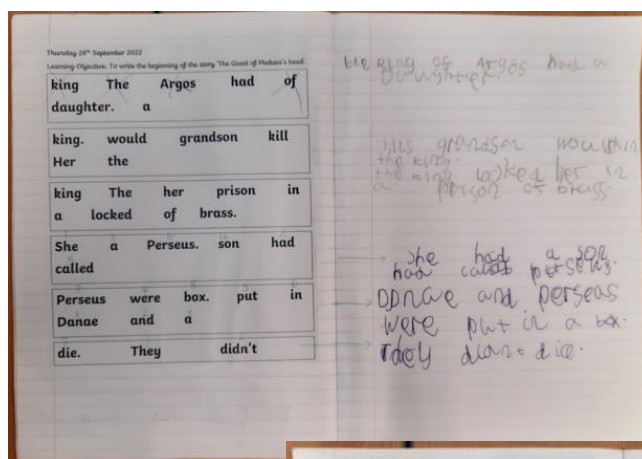 Thursday 28th September 2022
Learning Objective: To write the beginning of the story 'The Quest of Medusa's head'.
king The Argos had of
daughter. a
king. would grandson kill
Her the
king The her prison in
a locked of brass.
She a Perseus. son had
called
Perseus were box. put in
Danae and a
die. They didn't
the king of Argos had a
Daughter.
His grandson
the king.
the king locked her in
a prison of brass.
She had a son
had called perseus.
and perseas
were put in a box.
They die.